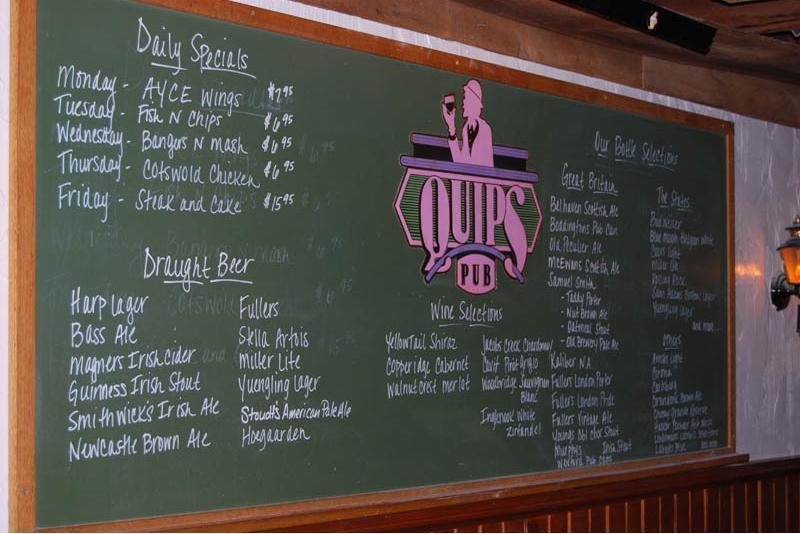 Daily Specials
Monday - AYCE Wings $7.95
Tuesday - Fish N Chips $6.95
Wednesday - Bangers N Mash $6.95
Thursday - Cotswold Chicken $6.95
Friday - Steak and Cake $15.95
Draught Beer
Harp Lager
Bass Ale
Magners Irish cider
Guinness Irish Stout
Smithwick's Irish Ale
Newcastle Brown Ale
Fullers
Stella Artois
Miller Lite
Yuengling Lager
Stoudt's American Pale Ale
Hoegaarden
QUIPS
PUB
Wine Selections
Yellow Tail Shiraz
Copperidge Cabernet
Walnut crest merlot
Jacobs Creek Chardonnay
Cavit Pinot Grigio
Woodbridge Sauvignon
Blanc
Inglenook White
Zinfandel
Our Bottle Selections
Great Britain
Belhaven Scottish Ale
Boddingtons Pub Can
Old Peculier Ale
McEwans Scottish Ale
Samuel Smith
- Taddy Porter
- Nut Brown Ale
- Oatmeal Stout
- Old Brewery Pale Ale
Kaliber N.A.
Fullers London Porter
Fuller's London Pride
Fullers Vintage Ale
Youngs Dbl Choc Stout
Murphy's Irish Stout
Pub Cans
The States
Budweiser
Blue Moon Belgian White
Coors Light
Miller Lite
Rolling Rock
Sam Adams Boston Lager
Yuengling Lager
and more...
Others
Amstel Light
Corona
Carlsberg
and more